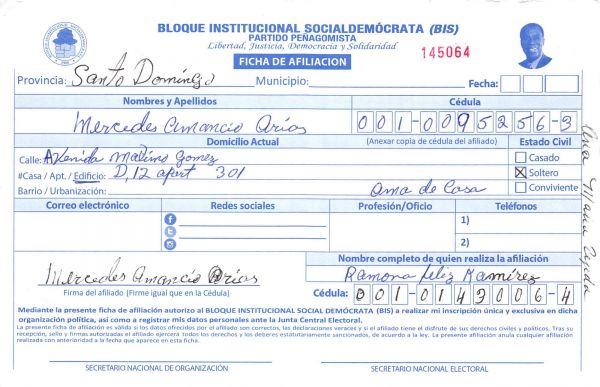 BLOQUE INSTITUCIONAL SOCIALDEMÓCRATA (BIS)
PARTIDO PEÑAGOMISTA
Libertad, Justicia, Democracia y Solidaridad
FICHA DE AFILIACION
145064
Provincia: Santo Domingo Municipio: Fecha:
Nombres y Apellidos Cédula
Mercedes Amancio Arias 001-0095256-3
Domicilio Actual (Anexar copia de cédula del afiliado) Estado Civil
Calle: Avenida Maximo Gomez Casado
#Casa / Apt. / Edificio: D, 12 apart 301 Soltero
Barrio / Urbanización: Ama de Casa Conviviente
Correo electrónico Redes sociales Profesión/Oficio Teléfonos
1)
2)
Nombre completo de quien realiza la afiliación
Mercedes Amancio Arias Ramona Feliz Ramírez
Firma del afiliado (Firme igual que en la Cédula) Cédula: 001-0143006-4
Mediante la presente ficha de afiliación autorizo al BLOQUE INSTITUCIONAL SOCIAL DEMÓCRATA (BIS) a realizar mi inscripción única y exclusiva en dicha
organización política, así como a registrar mis datos personales ante la Junta Central Electoral.
La presente ficha de afiliación es válida si los datos ofrecidos por el afiliado son correctos, las declaraciones veraces y si el afiliado tiene el disfrute de sus derechos civiles y políticos. Tras su
recepción, sello y firmas autorizadas el afiliado ejercerá todos los derechos y los deberes estatutariamente sancionados, de acuerdo a la ley. La presente afiliación anula cualquier afiliación
realizada con anterioridad a la fecha que aparece en esta ficha.
SECRETARIO NACIONAL DE ORGANIZACIÓN SECRETARIO NACIONAL ELECTORAL
Ana Maria